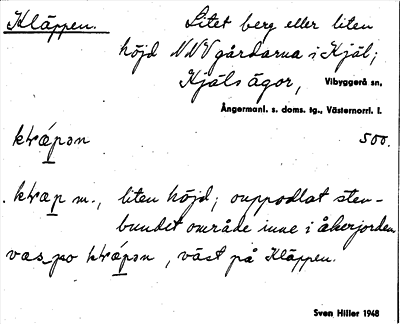 Kläppen. Litet berg eller liten
höjd NNV gårdarna i Kjäl;
Kjäls ägor, Vibyggerå sn,
Ångermanl. s. doms. tg., Västernorrl. l.
500.
m., liten höjd; ouppodlat sten-
bundet område inne i åkerjorden
, väst på Kläppen.
Sven Hiller 1948